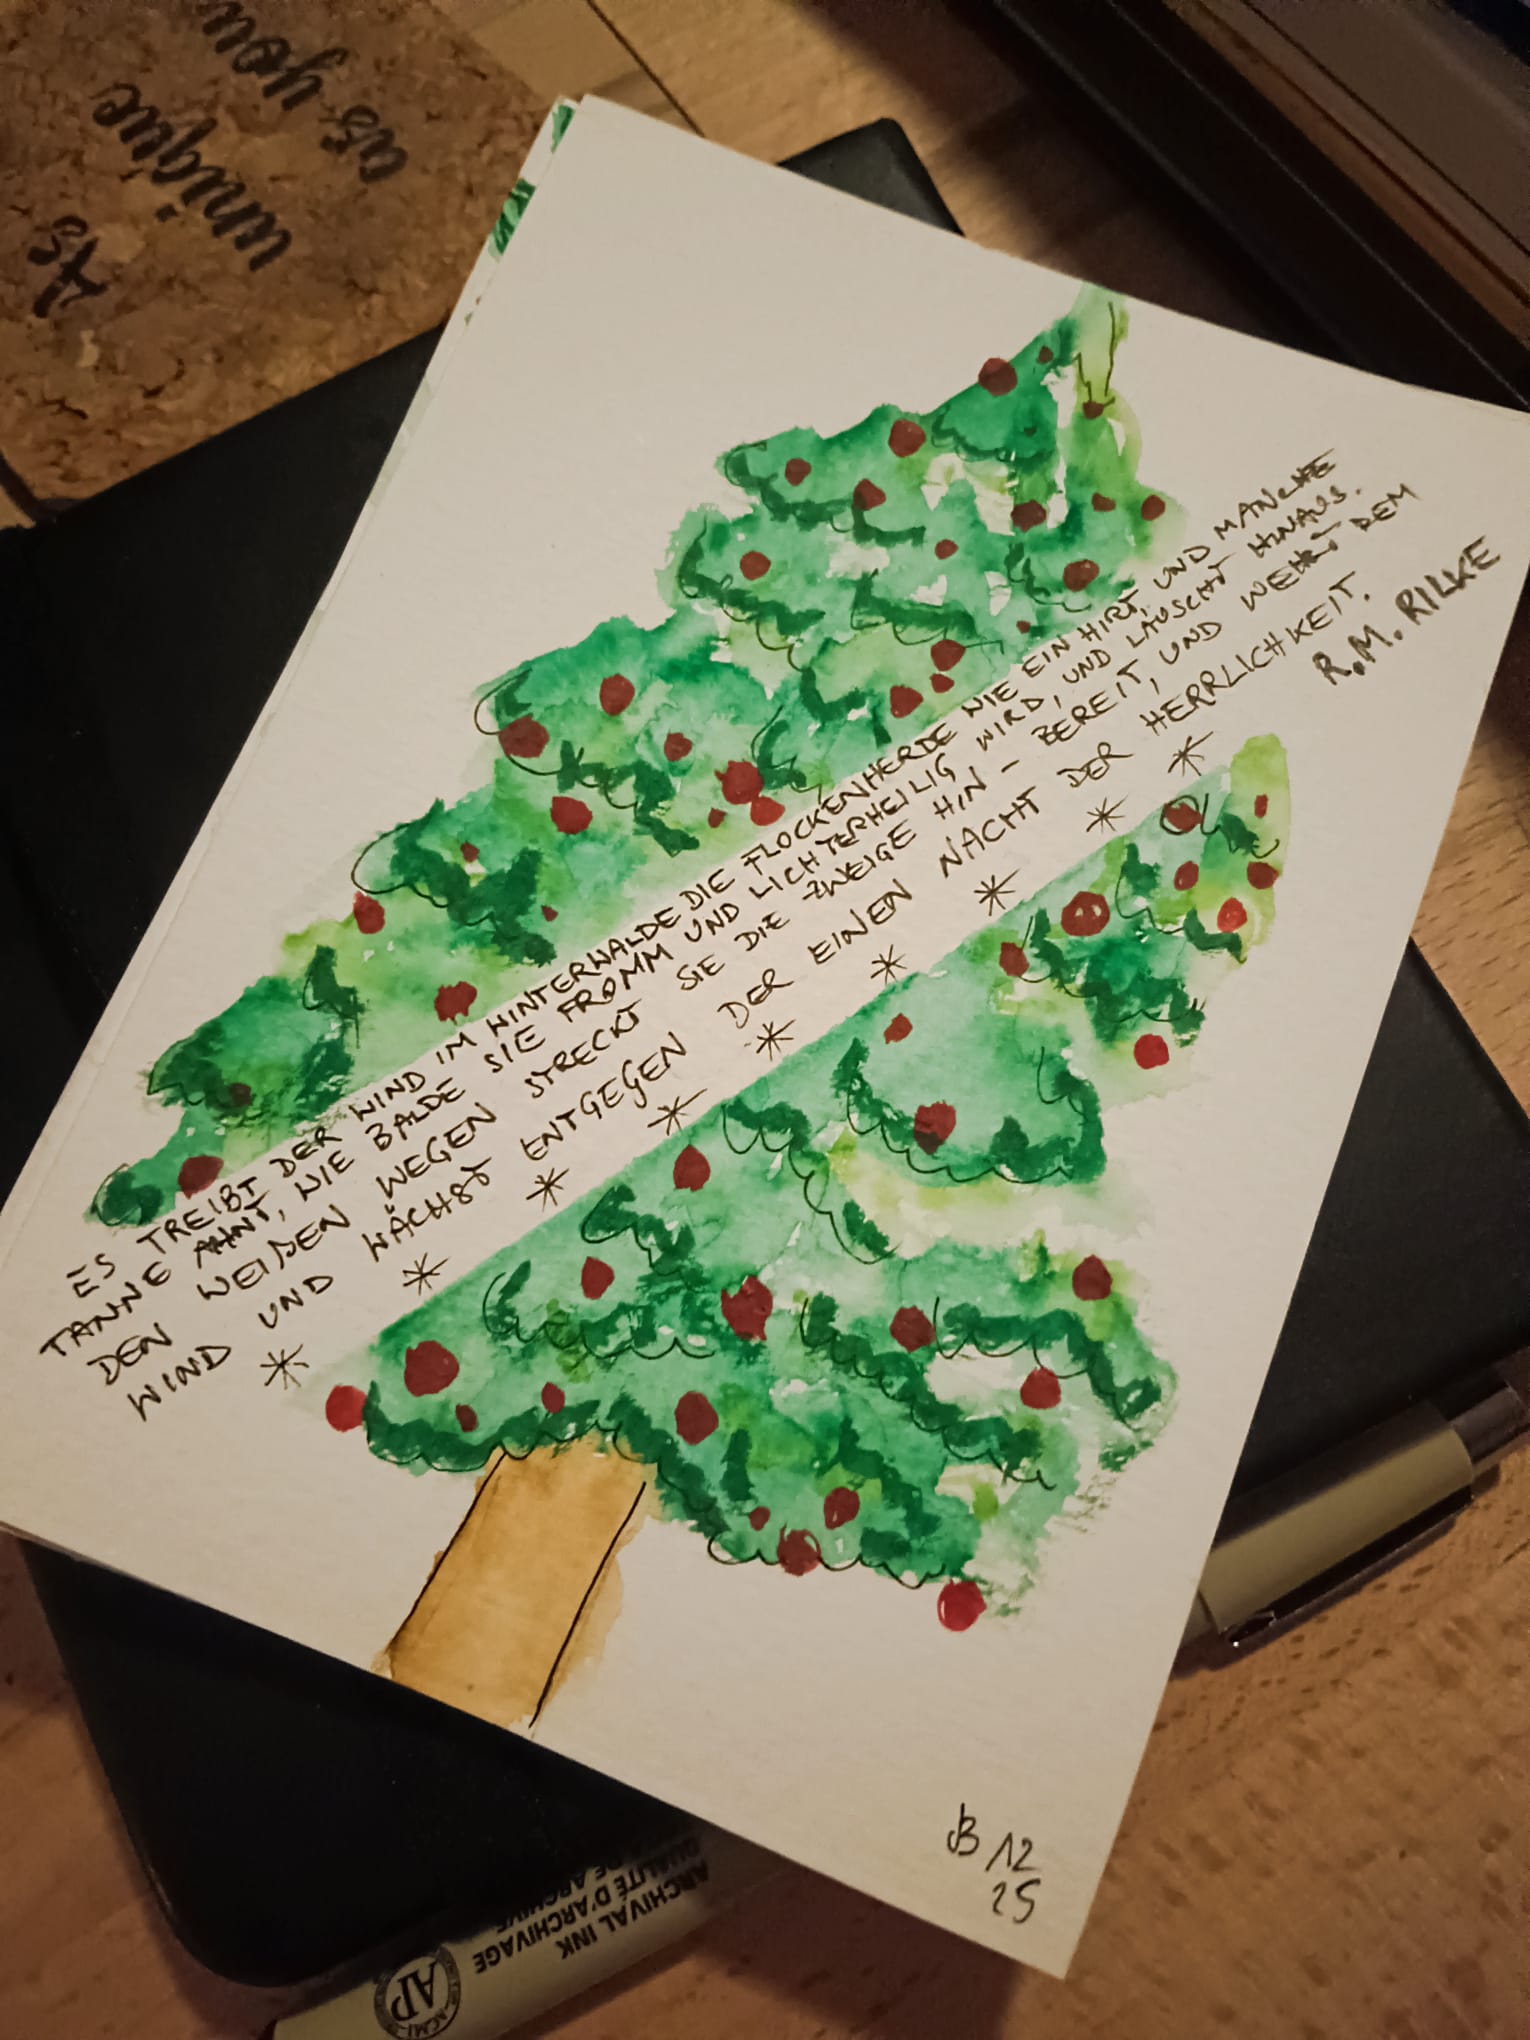 As
unique
as you
ES TREIBT DER WIND IM WINTERWALDE DIE FLOCKENHERDE WIE EIN HIRT, UND MANCHE
TANNE AHNT, WIE BALDE SIE FROMM UND LICHTERHEILIG WIRD, UND LAUSCHT HINAUS.
DEN WEIßEN WEGEN STRECKT SIE DIE ZWEIGE HIN - BEREIT, UND WEHRT DEM
WIND UND WÄCHST ENTGEGEN DER EINEN NACHT DER HERRLICHKEIT.
R.M. RILKE
JB 12
25
ARCHIVAL INK
QUALITÉ D'ARCHIVAGE
AP